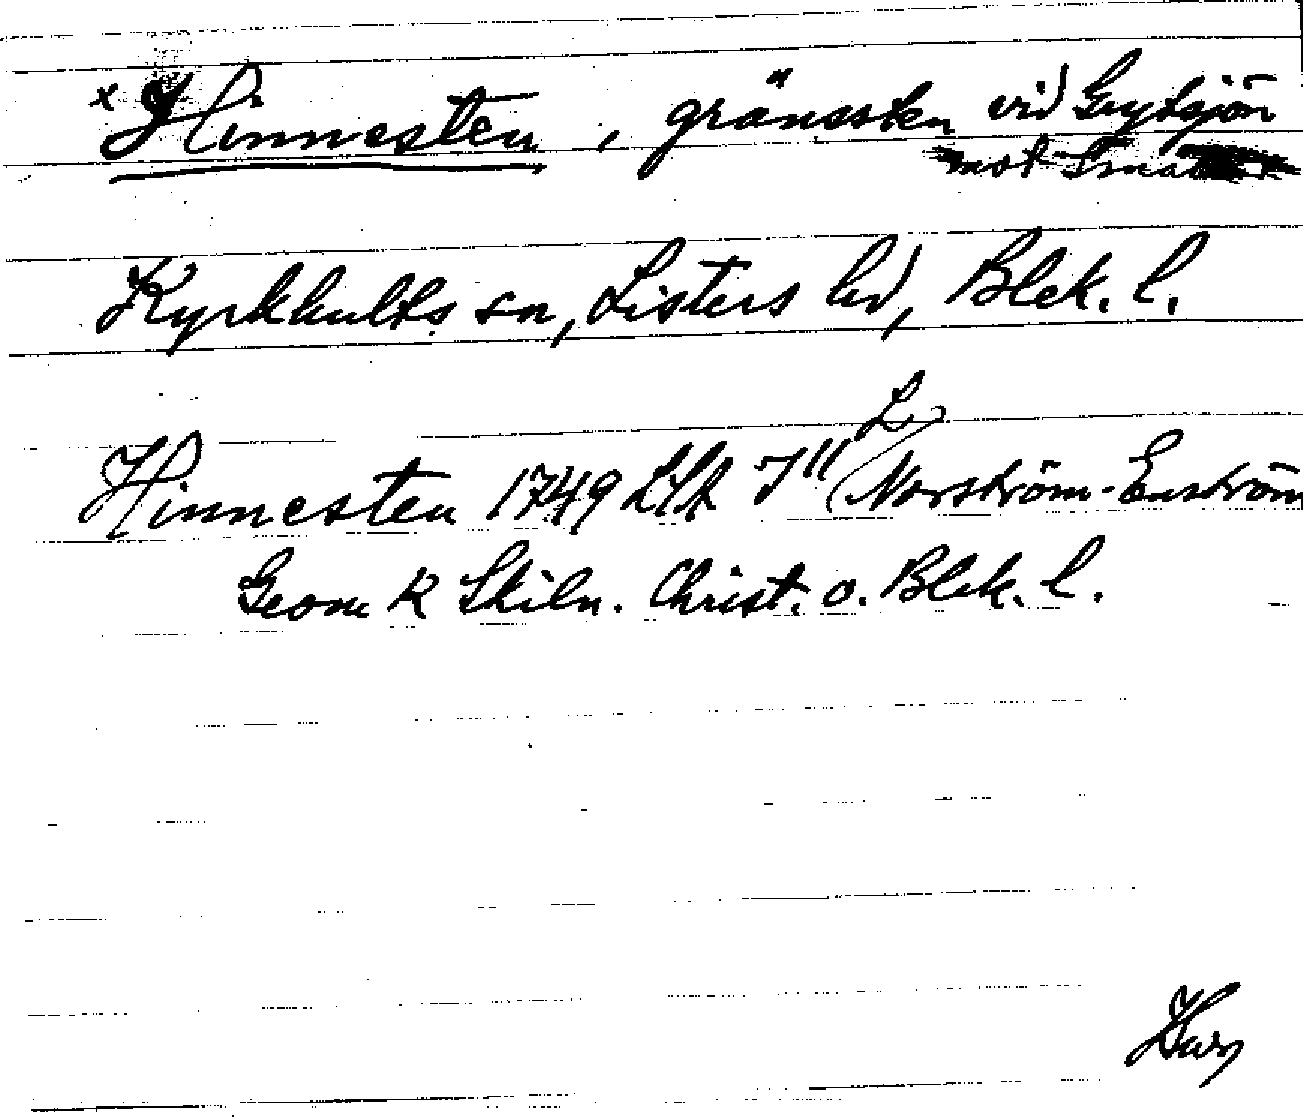 x Hinnesten, gränssten vid Grytsjön
mot
Kyrkhults sn, Listers hd, Blek. l.
Hinnesten 1749 L
Norström-Enström
Geom K Skiln. Christ. o. Blek. l.